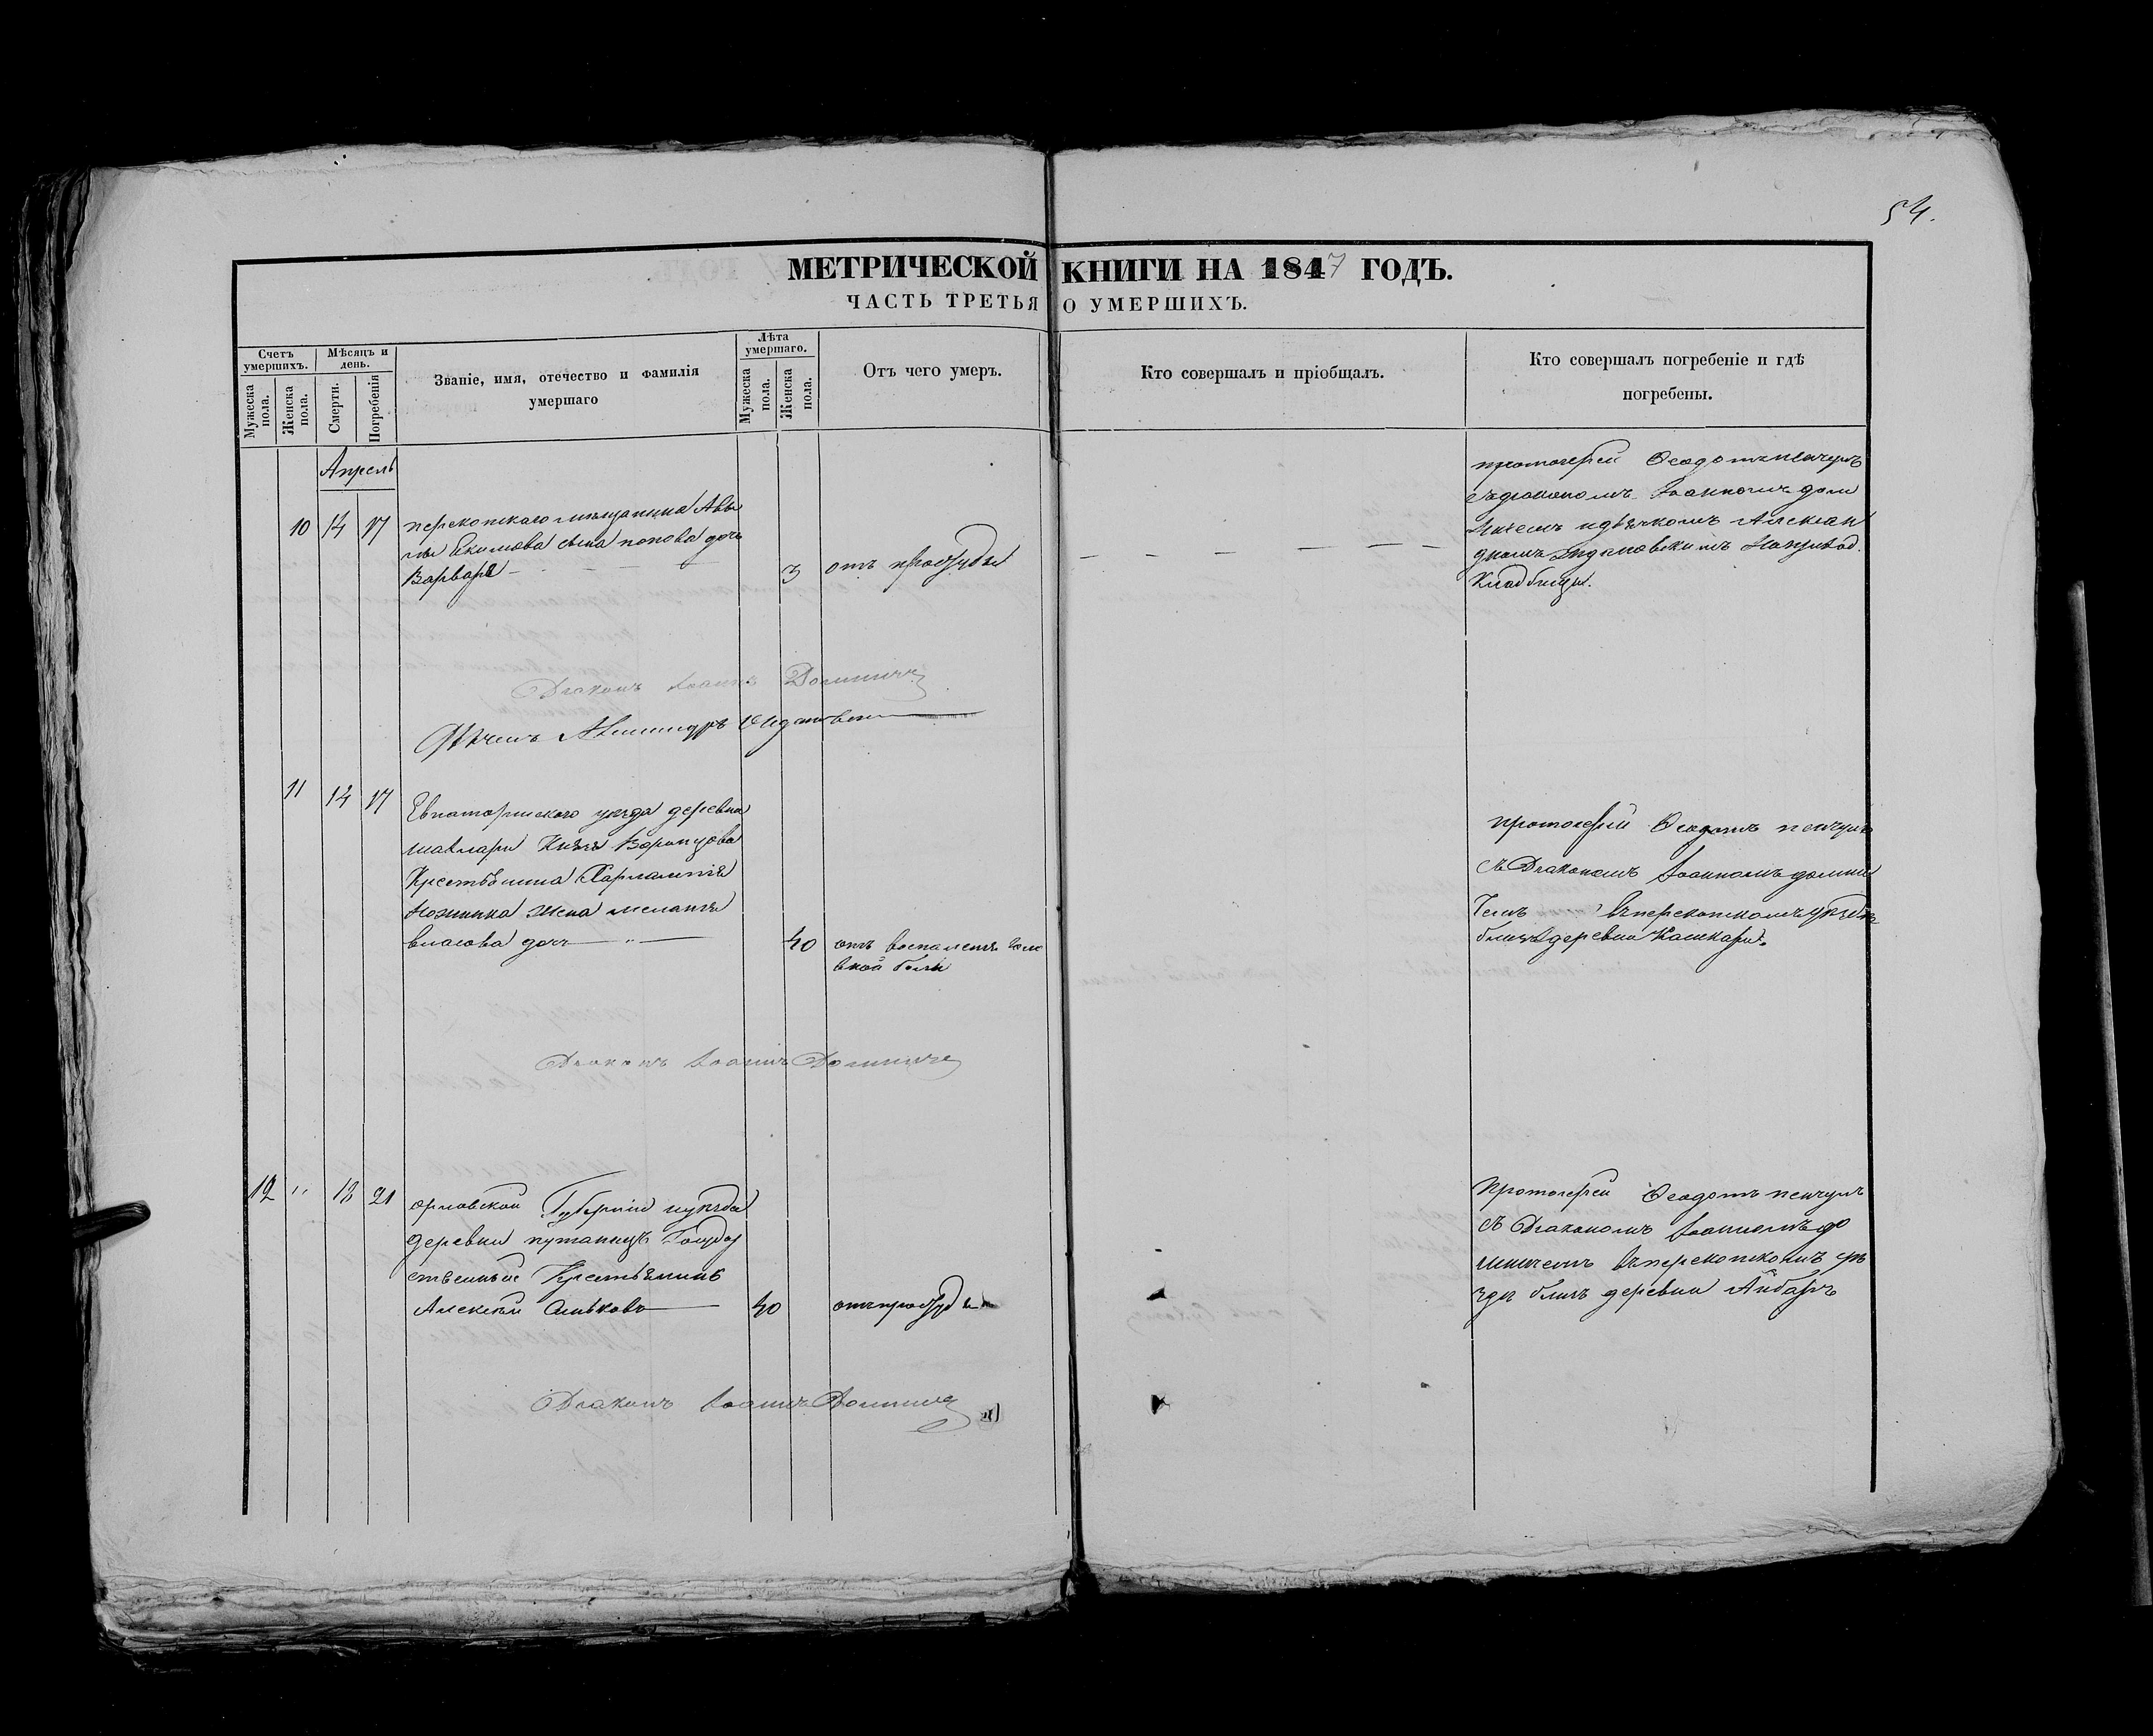 54.
МЕТРИЧЕСКОЙ КНИГИ НА 1847 ГОДЪ.
ЧАСТЬ ТРЕТЬЯ О УМЕРШИХЪ.
Счетъ умершихъ.
Мужеска пола.
Женска пола.
Мѣсяцъ и день.
Смерти.
Погребенія
Званіе, имя, отечество и фамилія
умершаго
Лѣта умершаго.
Мужеска пола.
Женска пола.
Отъ чего умеръ.
Кто совершалъ и пріобщалъ.
Кто совершалъ погребеніе и гдѣ
погребены.
Апрель
10 14 17
перекопскаго мѣщанина
Екимова сына попова дочь
Варвара
3 отъ простуды
протоіерей Ѳеодотъ
съ діакономъ Іоанномъ доми
ничемъ и дьячкомъ Алексан
дромъ на приход.
Кладбищи.
Діаконъ Іоаннъ Доминичъ
Дьячекъ Александръ
11 14 17
Евпаторискаго уѣзда деревни
Князя Воронцова
Крестьянина Харлампія
жена
власова дочь
40 отъ
боли
протоіерей Ѳеодотъ
съ Діакономъ Іоанномъ домини
чемъ въ перекопскомъ уѣздѣ
близъ деревни
Діаконъ Іоаннъ Доминичъ
12 18 21
орловской Губерніи уѣзда
деревни Государ
ственный Крестьянинъ
Алексѣй
40 отъ простуды
Протоіерей Ѳеодотъ
съ Діакономъ Іоанномъ до
миничемъ въ перекопскомъ уѣ
здѣ близъ деревни Айбаръ
Діаконъ Іоаннъ Доминичъ